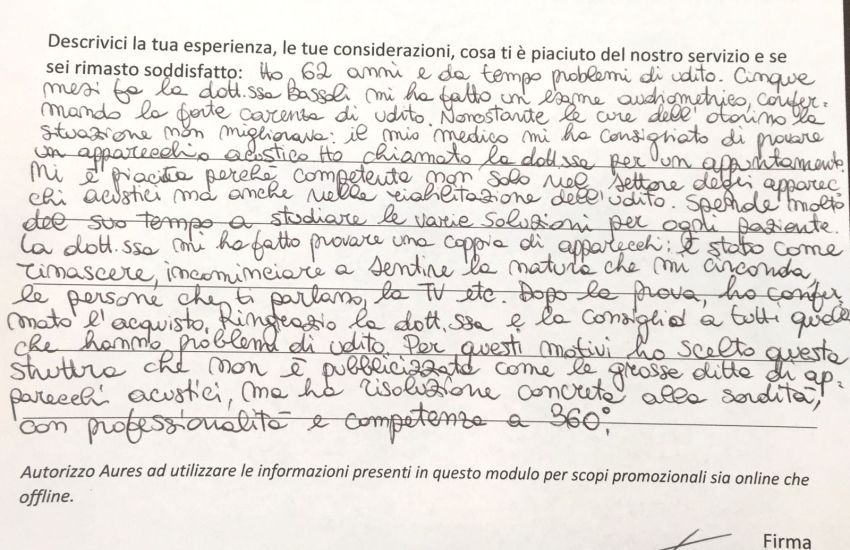 Descrivici la tua esperienza, le tue considerazioni, cosa ti è piaciuto del nostro servizio e se
sei rimasto soddisfatto: Ho 62 anni e da tempo problemi di udito. Cinque
mesi fa la dott.ssa Bassoli mi ha fatto un esame audiometrico, confer=
mando la forte carenza di udito. Nonostante le cure dell'otorino la
situazione non migliorava: il mio medico mi ha consigliato di provare
un apparecchio acustico. Ho chiamato la dott.ssa per un appuntamento.
Mi è piaciuta perché competente non solo nel settore degli apparec
chi acustici ma anche nella riabilitazione dell'udito. Spende molto
del suo tempo a studiare le varie soluzioni per ogni paziente.
La dott.ssa mi ha fatto provare una coppia di apparecchi: è stato come
rinascere, incominciare a sentire la natura che mi circonda,
le persone che ti parlano, la TV etc. Dopo la prova, ho confer
mato l'acquisto. Ringrazio la dott.ssa e la consiglio a tutti quelli
che hanno problemi di udito. Per questi motivi ho scelto questa
struttura che non è pubblicizzata come le grosse ditte di ap=
parecchi acustici, ma ha risoluzione concreta alla sordità,
con professionalità e competenza a 360°.
Autorizzo Aures ad utilizzare le informazioni presenti in questo modulo per scopi promozionali sia online che
offline.
Firma